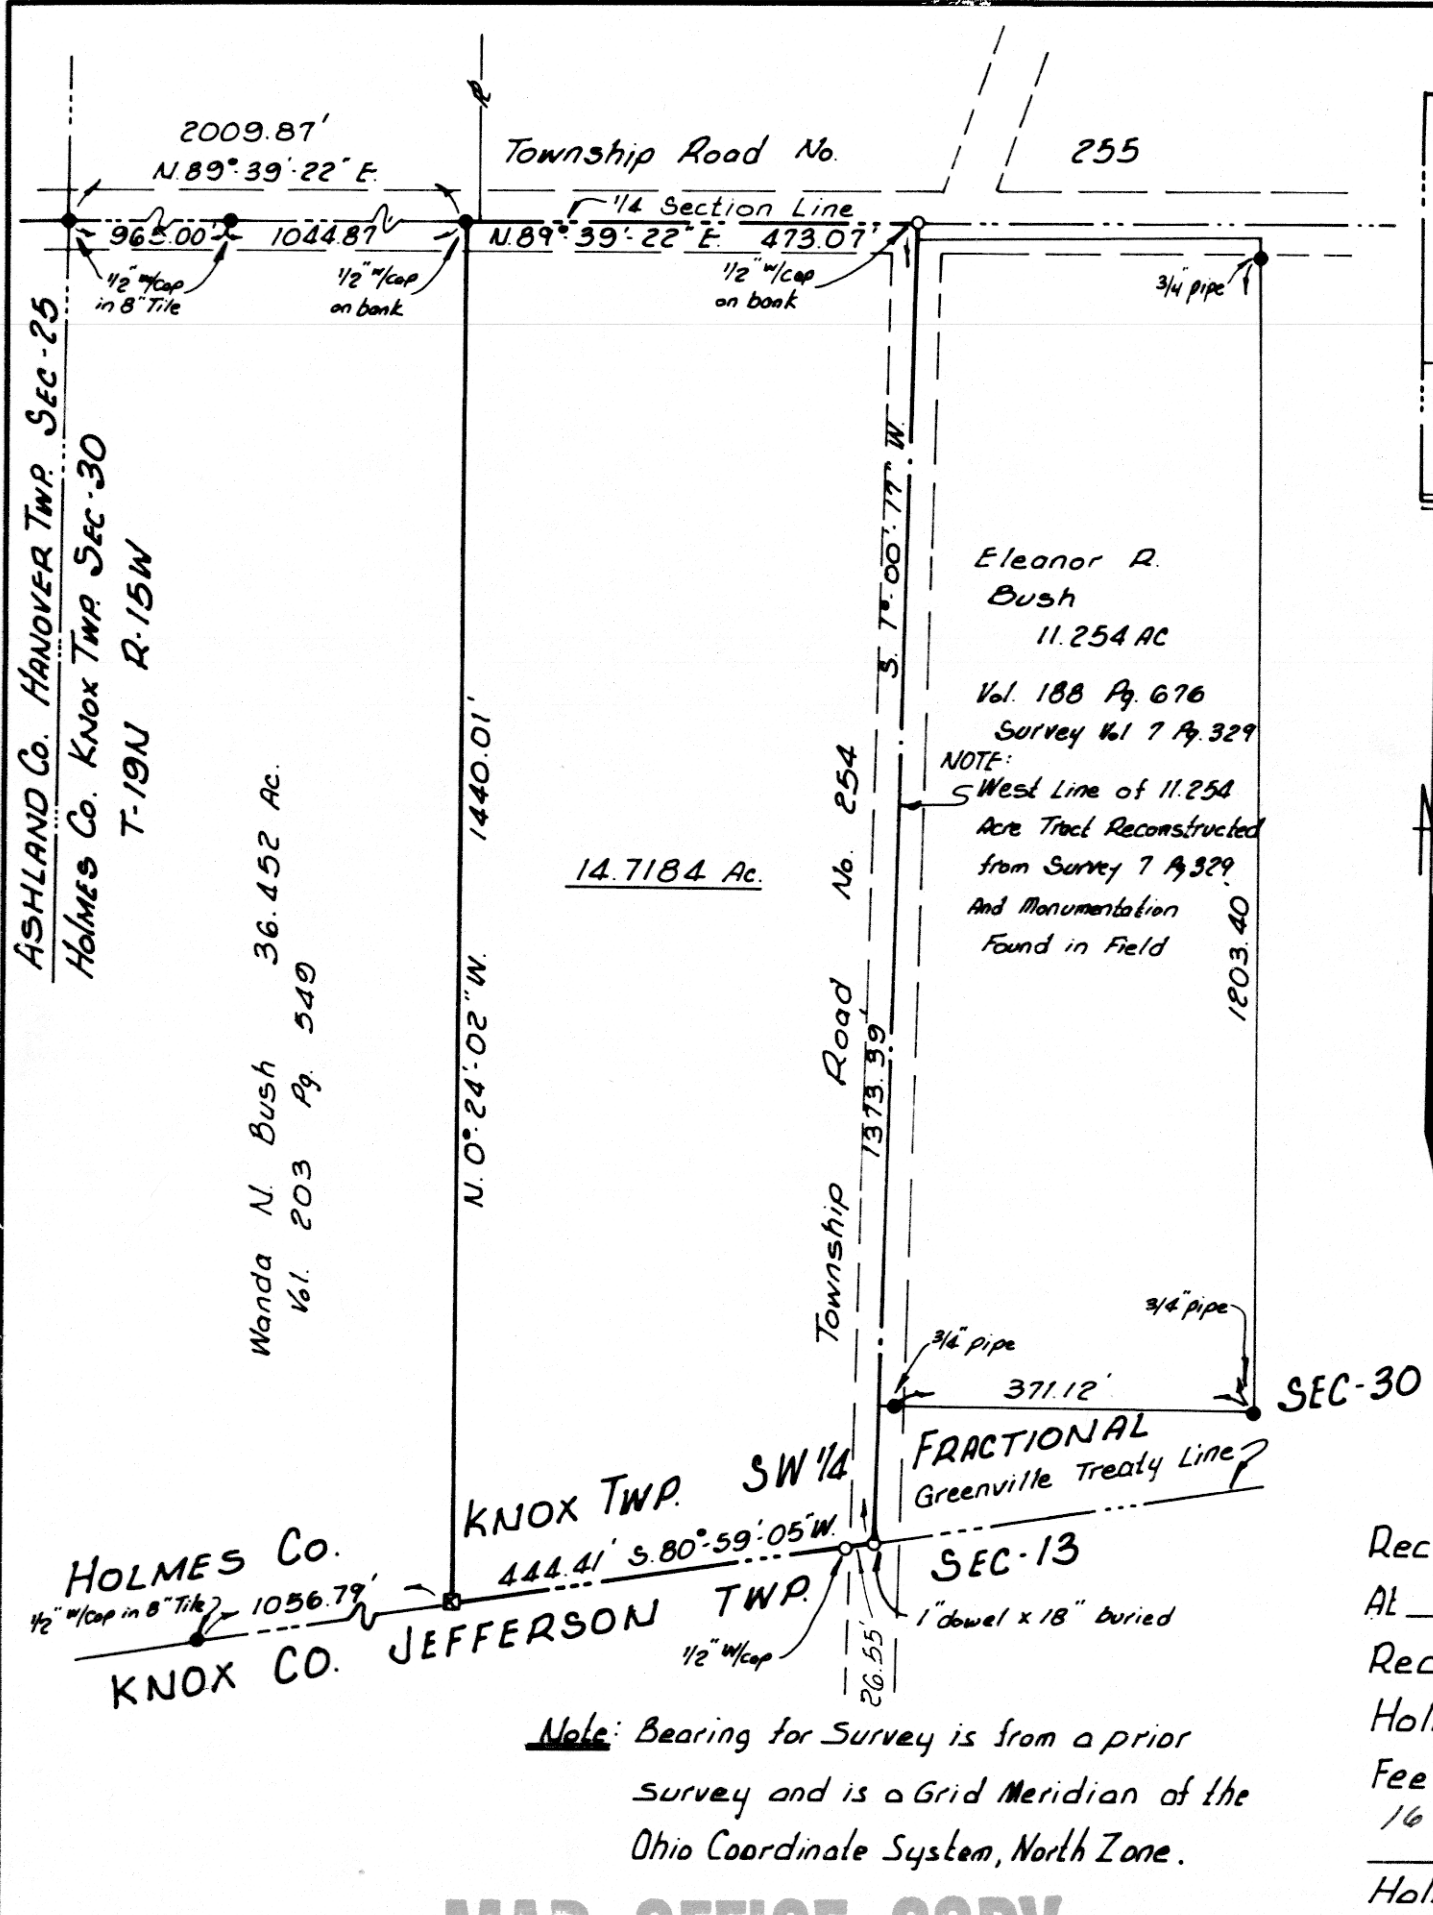 2009.87'
N.89°-39'-22" E.
Township Road No. 255
1/4 Section Line
965.00'
1044.87'
N.89°-39'-22" E. 473.07'
1/2" w/cap
in 8" Tile
1/2" w/cap
on bank
1/2" w/cap
on bank
3/4" pipe
ASHLAND Co. HANOVER TWP. SEC-25
Holmes Co. KNOX TWP. SEC-30
T-19N R-15W
Wanda N. Bush 36.452 Ac.
Vol. 203 Pg. 549
N. 0°-24'-02" W. 1440.01'
14.7184 Ac.
S. 1°-00'-17" W.
1373.39'
Township Road No. 254
Eleanor R.
Bush
11.254 AC
Vol. 188 Pg. 676
Survey Vol 7 Pg. 329
NOTE:
West Line of 11.254
Acre Tract Reconstructed
from Survey 7 Pg 329
And Monumentation
Found in Field
1203.40'
3/4" pipe
3/4" pipe
371.12'
SEC-30
FRACTIONAL
Greenville Treaty Line
KNOX TWP. SW 1/4
444.41' S.80°-59'-05"W.
SEC-13
HOLMES Co.
1/2" w/cap in 8" Tile
1056.79'
KNOX CO. JEFFERSON TWP.
1/2" w/cap
26.55'
1" dowel x 18" buried
Note: Bearing for Survey is from a prior
survey and is a Grid Meridian of the
Ohio Coordinate System, North Zone.
Rec
At
Rec
Hol
Fee
16
Hol
MAP OFFICE COPY